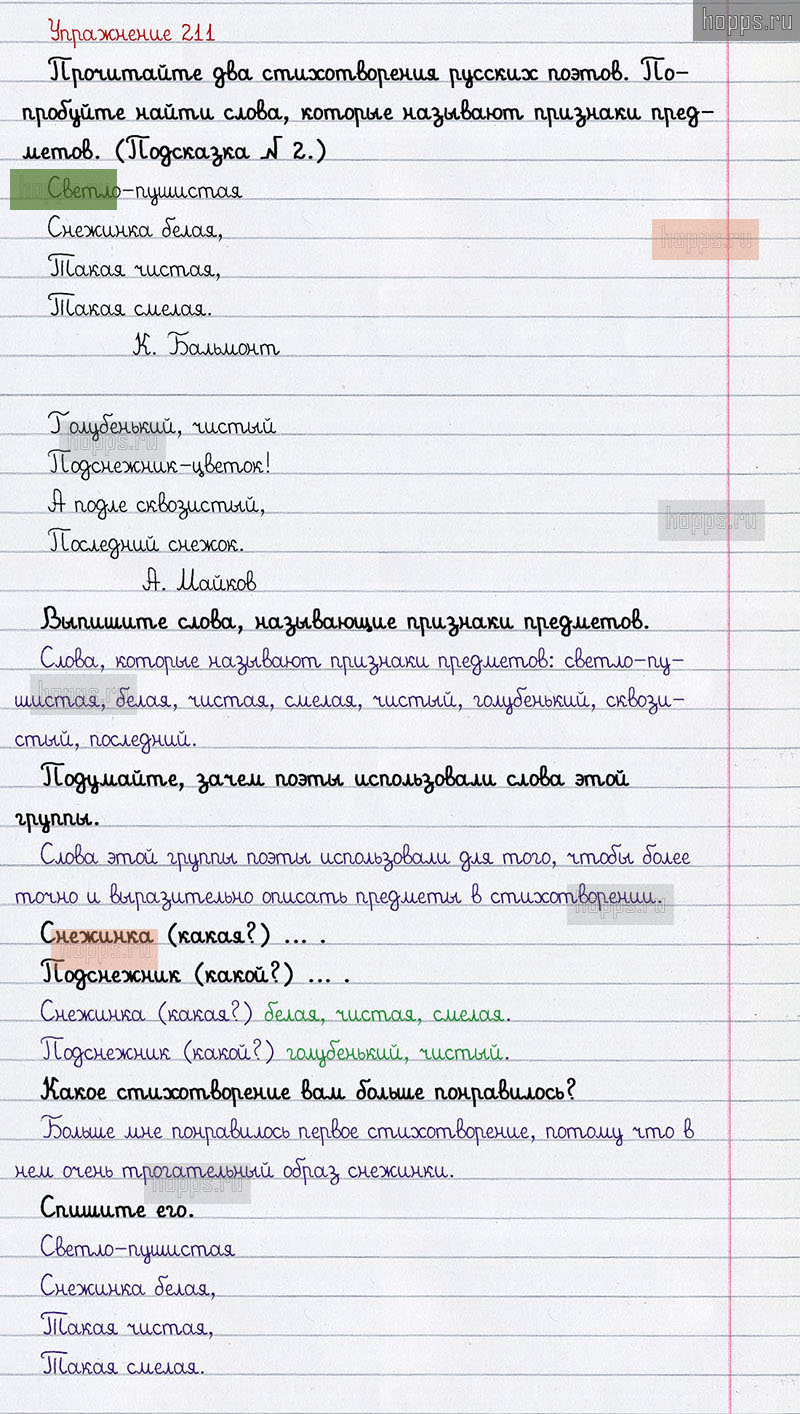 hopps.ru
Упражнение 211
Прочитайте два стихотворения русских поэтов. По-
пробуйте найти слова, которые называют признаки пред-
метов. (Подсказка № 2.)
Светло-пушистая
Снежинка белая,
hopps.ru
Такая чистая,
Такая смелая.
К. Бальмонт
Голубенький, чистый
hopps.ru
Подснежник-цветок!
А подле сквозистый,
hopps.ru
Последний снежок.
А. Майков
Выпишите слова, называющие признаки предметов.
Слова, которые называют признаки предметов: светло-пу-
hopps.ru
шистая, белая, чистая, смелая, чистый, голубенький, сквози-
стый, последний.
Подумайте, зачем поэты использовали слова этой
группы.
Слова этой группы поэты использовали для того, чтобы более
точно и выразительно описать предметы в стихотворении.
hopps.ru
Снежинка (какая?) ... .
hopps.ru
Подснежник (какой?) ... .
Снежинка (какая?) белая, чистая, смелая.
Подснежник (какой?) голубенький, чистый.
Какое стихотворение вам больше понравилось?
Больше мне понравилось первое стихотворение, потому что в
нем очень трогательный образ снежинки.
hopps.ru
Спишите его.
Светло-пушистая
Снежинка белая,
Такая чистая,
Такая смелая.